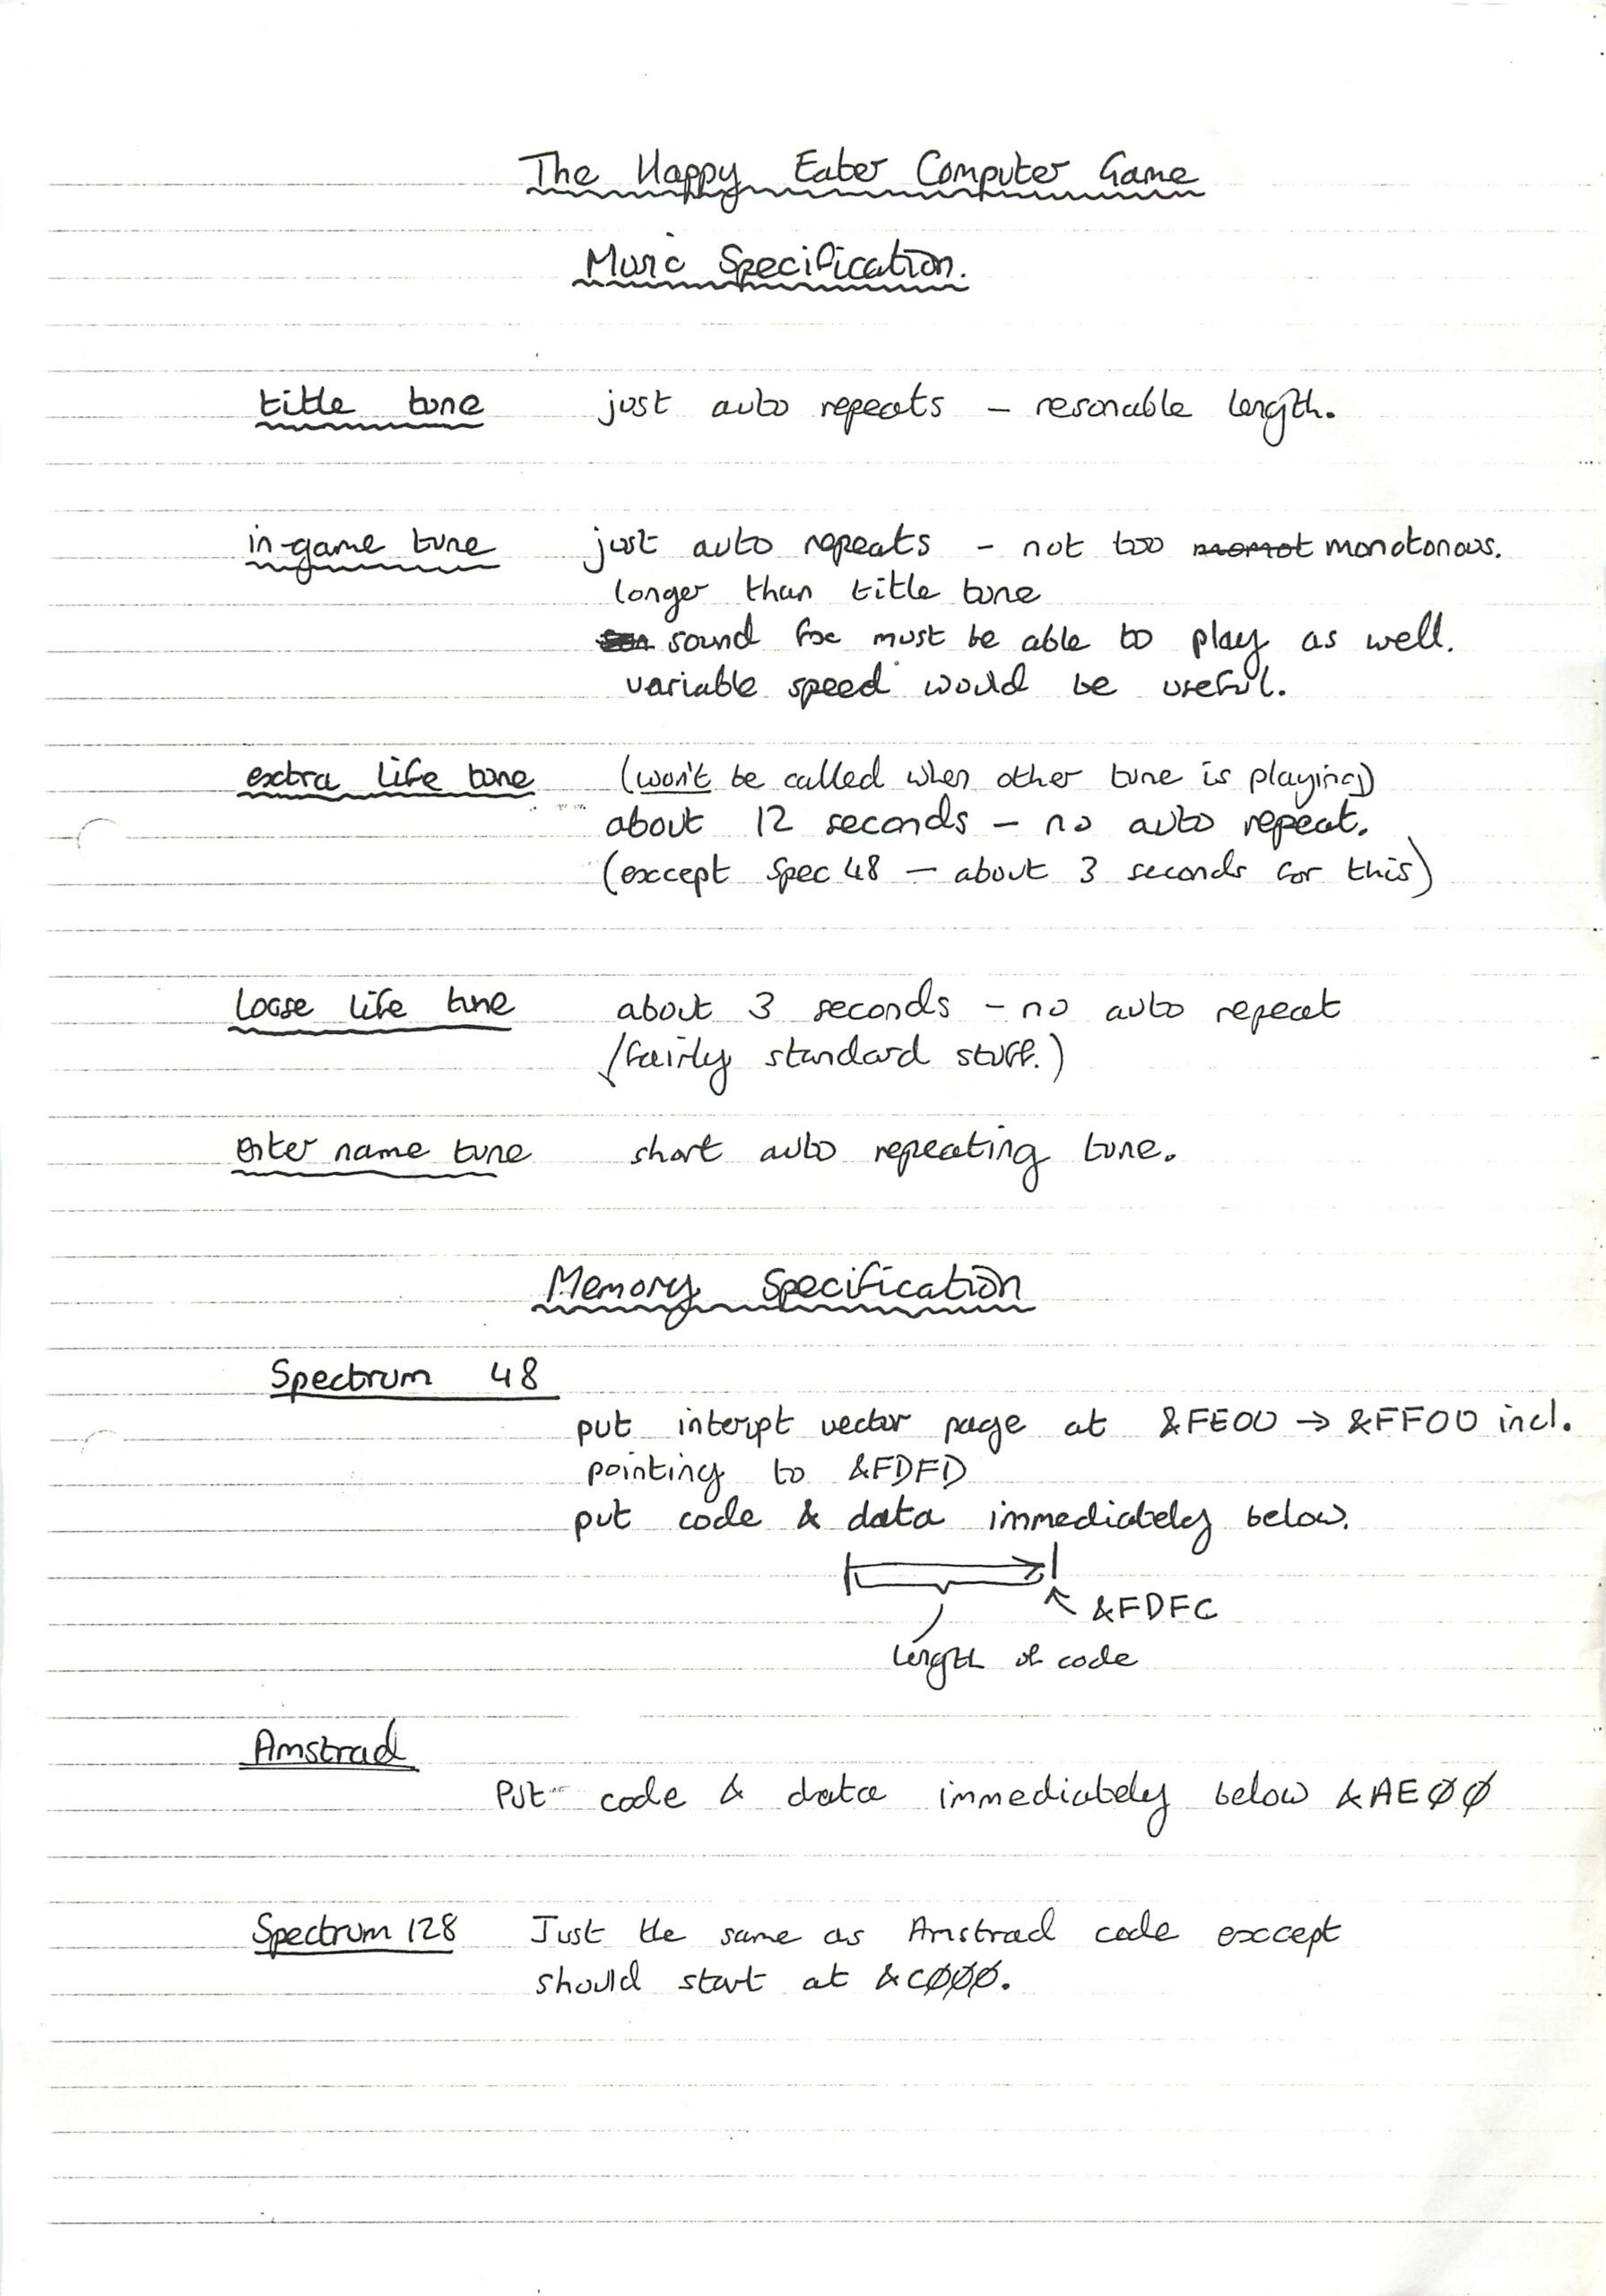 The Happy Eater Computer Game
Music Specification.
title tune just auto repeats – resonable length.
in-game tune just auto repeats – not too momot monotonous.
longer than title tune
sound fx must be able to play as well.
variable speed would be useful.
extra life tune (won't be called when other tune is playing)
about 12 seconds – no auto repeat.
(except Spec 48 – about 3 seconds for this)
loose life tune about 3 seconds – no auto repeat
(fairly standard stuff.)
enter name tune short auto repeating tune.
Memory Specification
Spectrum 48
put interpt vector page at &FE00 → &FF00 incl.
pointing to &FDFD
put code & data immediately below.
&FDFC
length of code
Amstrad
Put code & data immediately below &AEØØ
Spectrum 128 Just the same as Amstrad code except
should start at &CØØØ.